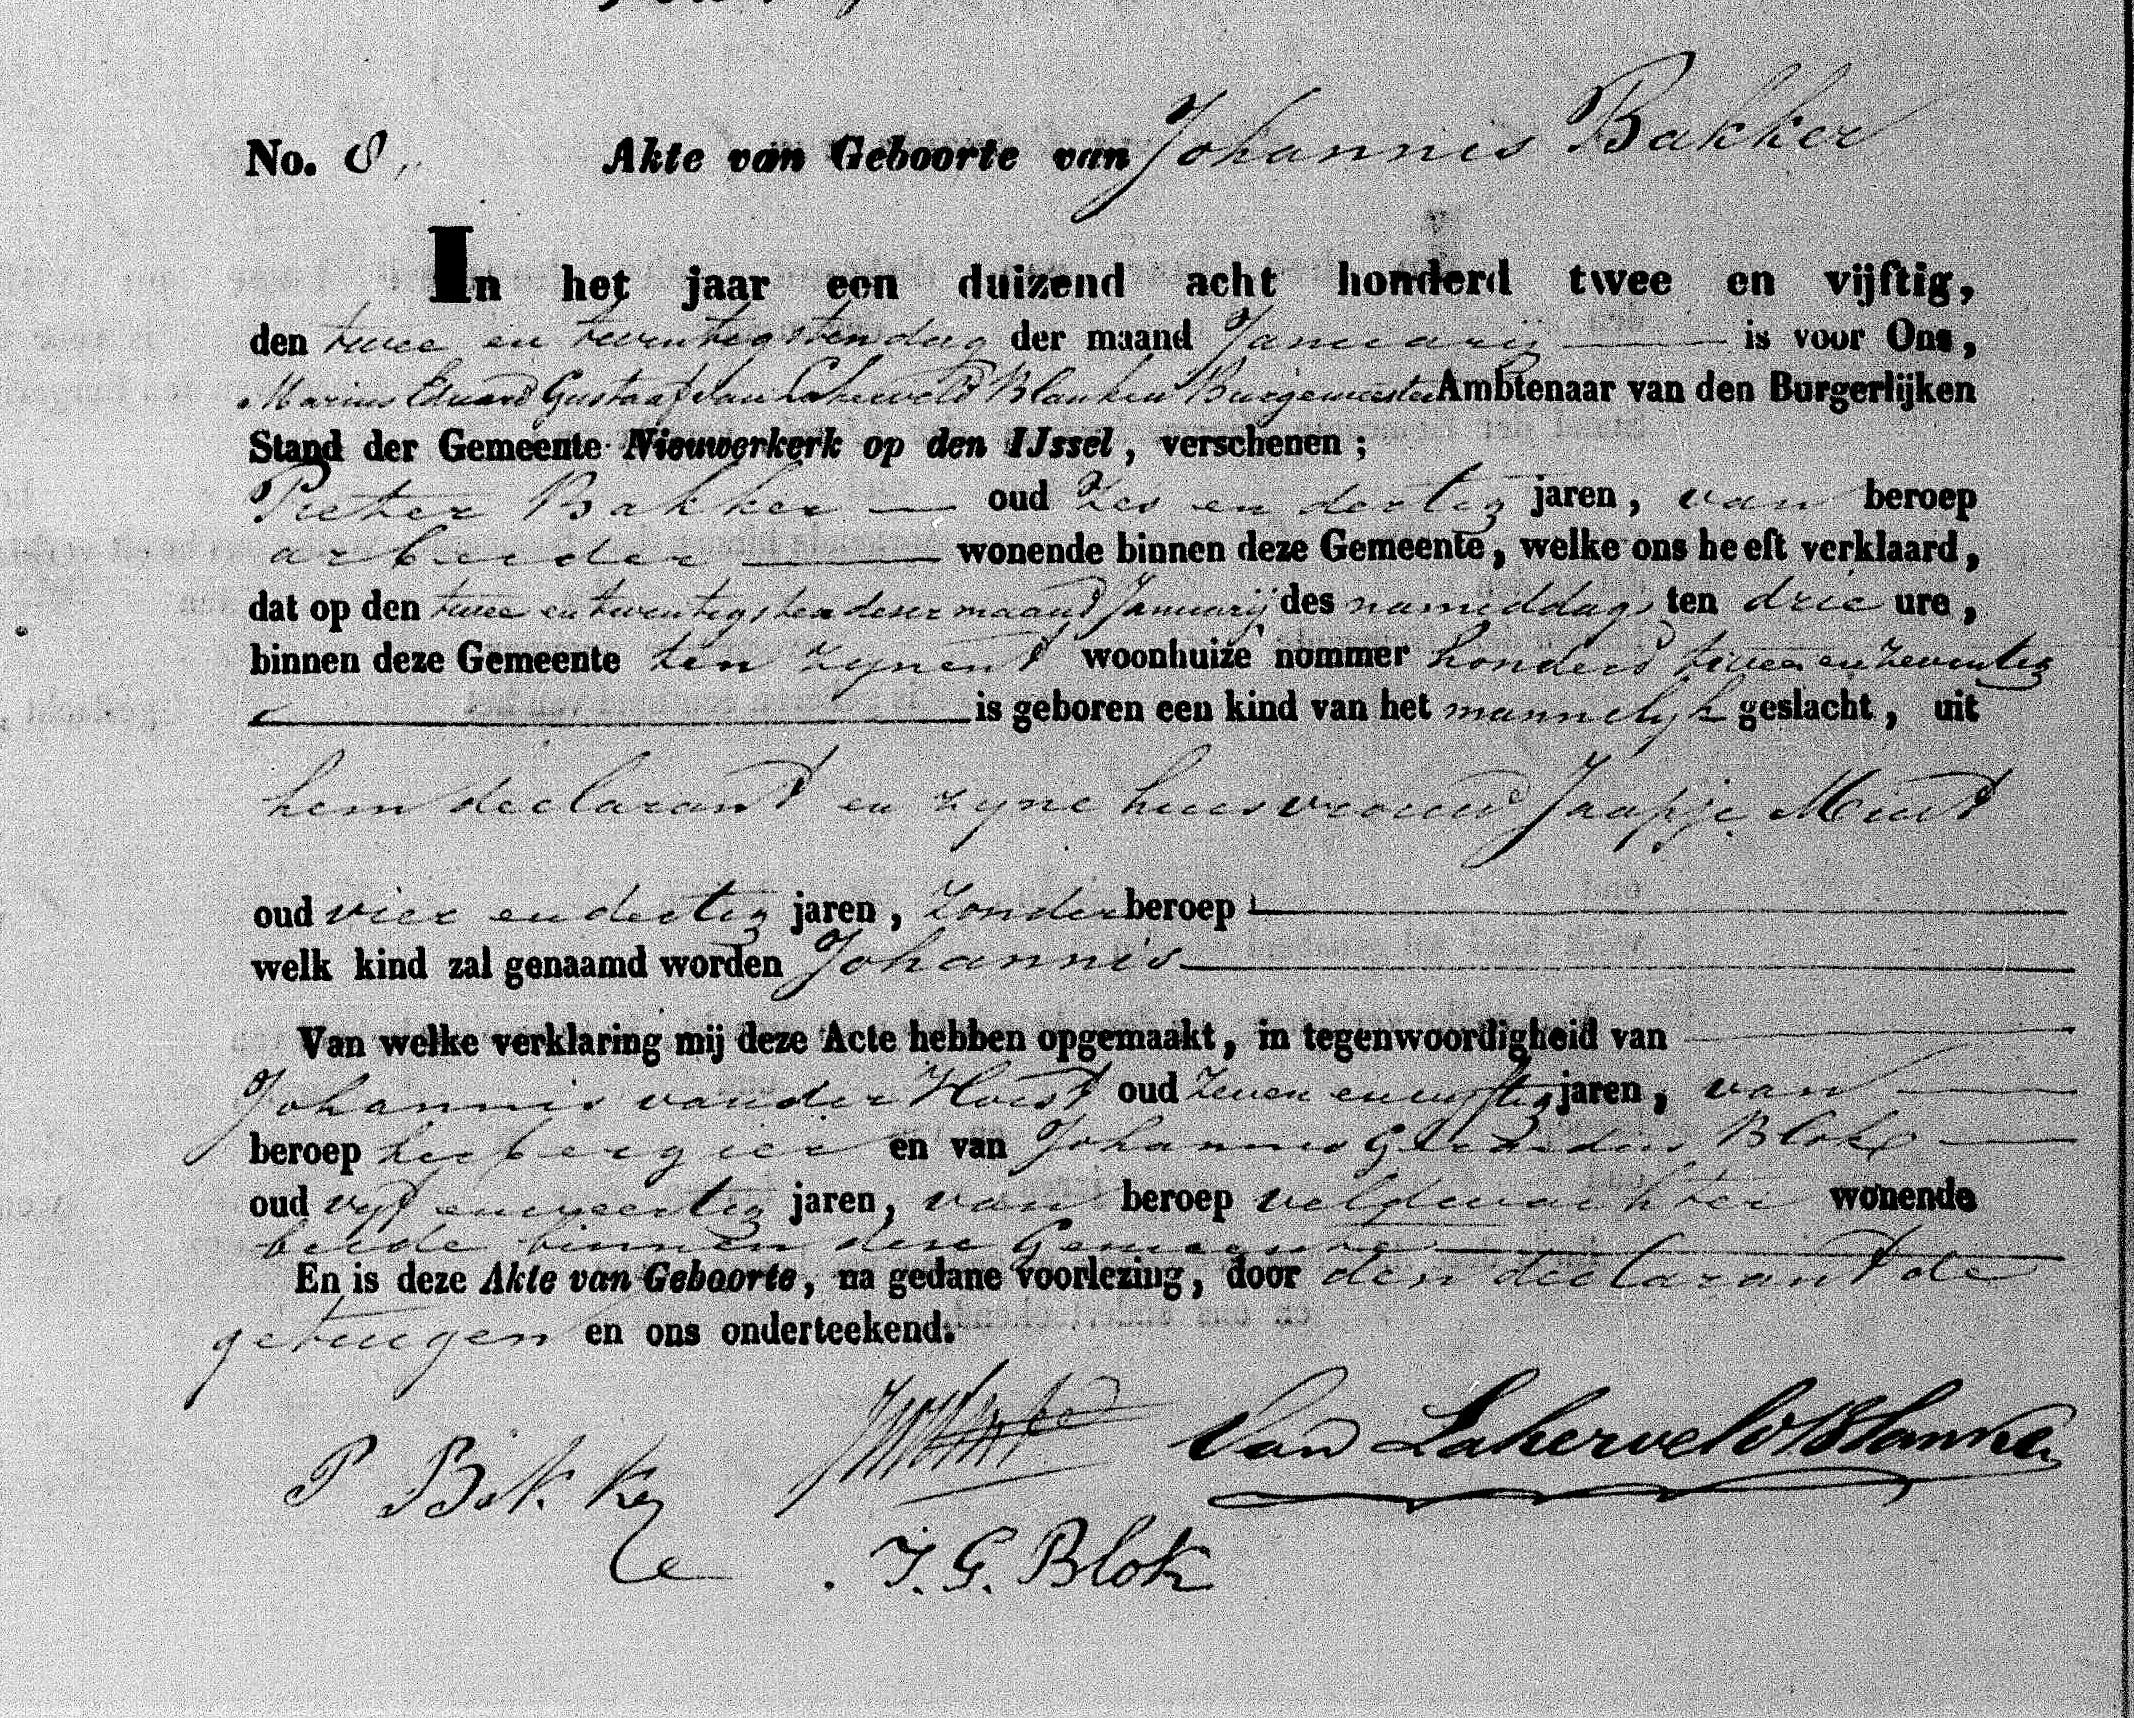 No. 8. Akte van Geboorte van Johannis Bakker
In het jaar een duizend acht honderd twee en vijftig,
den twee en twentigsten dag der maand Januarij is voor Ons,
Marius Eduard Gustaaf van Lakerveld Blanken Burgemeester Ambtenaar van den Burgerlijken
Stand der Gemeente Nieuwerkerk op den IJssel, verschenen;
Pieter Bakker oud Zes en dertig jaren, van beroep
arbeider wonende binnen deze Gemeente, welke ons heeft verklaard,
dat op den twee en twentigsten dezer maand Januarij des namiddags ten drie ure,
binnen deze Gemeente ten zynent woonhuize nommer honderd twee en zeventig
is geboren een kind van het mannelyk geslacht, uit
hem declarant en zyne huisvrouw Jaapje
oud vier en dertig jaren, zonder beroep
welk kind zal genaamd worden Johannis
Van welke verklaring mij deze Acte hebben opgemaakt, in tegenwoordigheid van
Johannis van der Horst oud Zeven en vyftig jaren, van
beroep herbergier en van Johannes Gerardus Blok
oud vyf en veertig jaren, van beroep veldwachter wonende
beide binnen deze Gemeente
En is deze Akte van Geboorte, na gedane voorlezing, door den declarant de
getuigen en ons onderteekend.
P Bakker
Van Lakerveld Blanken
J. G. Blok